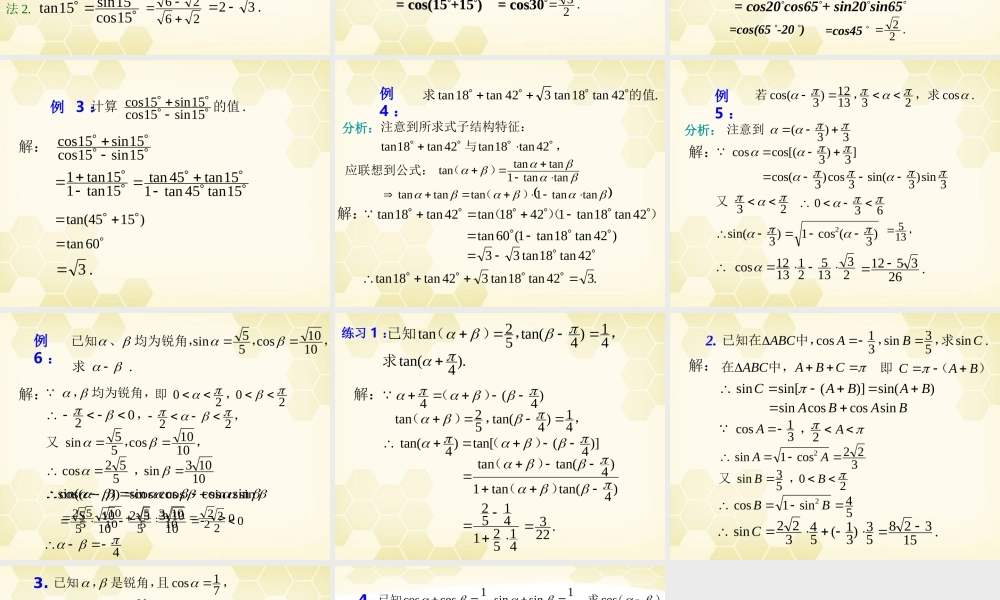 法 2. tan15° = sin15°/cos15° = (√6−√2)/(√6+√2) = 2−√3 .
= cos(15°+15°) = cos30° = √3/2 .
= cos20°cos65°+ sin20°sin65°
=cos(65 °-20 °) =cos45 ° = √2/2 .
例 3 : 计算 (cos15°+sin15°)/(cos15°−sin15°) 的值 .
解: (cos15°+sin15°)/(cos15°−sin15°)
= (1+tan15°)/(1−tan15°) = (tan45°+tan15°)/(1−tan45°tan15°)
= tan(45°+15°)
= tan60°
= √3 .
例 4 : 求 tan18°+tan42°+√3 tan18°tan42°的值.
分析: 注意到所求式子结构特征:
tan18°+tan42°与tan18°·tan42°,
应联想到公式: tan(α+β) = (tanα+tanβ)/(1−tanα·tanβ)
⇒ tanα+tanβ = tan(α+β)(1−tanα·tanβ)
解: ∵ tan18°+tan42° = tan(18°+42°)(1−tan18°tan42°)
= tan60°(1−tan18°tan42°)
= √3−√3 tan18°tan42°
∴ tan18°+tan42°+√3 tan18°tan42° = √3.
例 5 : 若 cos(α−π/3) = 12/13, π/3<α<π/2, 求 cosα .
分析: 注意到 α = (α−π/3)+π/3
解: ∵ cosα = cos[(α−π/3)+π/3]
= cos(α−π/3)cosπ/3 − sin(α−π/3)sinπ/3
又 π/3<α<π/2 ∴ 0<α−π/3<π/6
∴ sin(α−π/3) = √(1−cos²(α−π/3)) = 5/13,
∴ cosα = 12/13·1/2 − 5/13·√3/2 = (12−5√3)/26 .
例 6 : 已知α、β均为锐角, sinα = √5/5, cosβ = √10/10,
求 α−β .
解: ∵ α,β均为锐角, 即 0<α<π/2, 0<β<π/2
∴ −π/2<−β<0, −π/2<α−β<π/2,
又 sinα = √5/5, cosβ = √10/10,
∴ cosα = 2√5/5 , sinβ = 3√10/10
∴ α−β = −π/4
练习 1 : 已知tan(α+β) = 2/5, tan(β−π/4) = 1/4,
求 tan(α+π/4).
解: ∵ α+π/4 = (α+β)−(β−π/4)
tan(α+β) = 2/5, tan(β−π/4) = 1/4,
∴ tan(α+π/4) = tan[(α+β)−(β−π/4)]
= (tan(α+β)−tan(β−π/4))/(1+tan(α+β)tan(β−π/4))
= (2/5−1/4)/(1+2/5·1/4) = 3/22 .
2. 已知在ΔABC中, cos A = −1/3, sin B = 3/5, 求 sin C .
解: 在ΔABC中, A+B+C = π 即 C = π−(A+B)
∴ sin C = sin[π−(A+B)] = sin(A+B)
= sin A cos B + cos A sin B
∵ cos A = −1/3 , π/2<A<π
∴ sin A = √(1−cos² A) = 2√2/3
又 sin B = 3/5 , 0<B<π/2
∴ cos B = √(1−sin² B) = 4/5
∴ sin C = 2√2/3·4/5+(−1/3)·3/5 = (8√2−3)/15 .
3. 已知 α,β 是锐角, 且 cosα = 1/7 ,